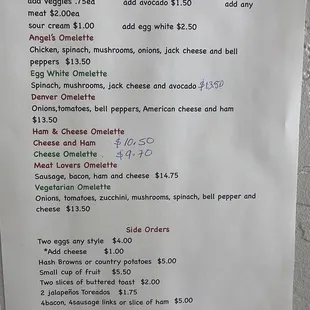 add veggies .75ea add avocado $1.50 add any
meat $2.00ea
sour cream $1.00 add egg white $2.50
Angel's Omelette
Chicken, spinach, mushrooms, onions, jack cheese and bell
peppers $13.50
Egg White Omelette
Spinach, mushrooms, jack cheese and avocado $13.50
Denver Omelette
Onions,tomatoes, bell peppers, American cheese and ham
$13.50
Ham & Cheese Omelette
Cheese and Ham $10.50
Cheese Omelette . $9.70
Meat Lovers Omelette
Sausage, bacon, ham and cheese $14.75
Vegetarian Omelette
Onions, tomatoes, zucchini, mushrooms, spinach, bell pepper and
cheese $13.50
Side Orders
Two eggs any style $4.00
*Add cheese $1.00
Hash Browns or country potatoes $5.00
Small cup of fruit $5.50
Two slices of buttered toast $2.00
2 jalapeños Toreados $1.75
4bacon, 4sausage links or slice of ham $5.00